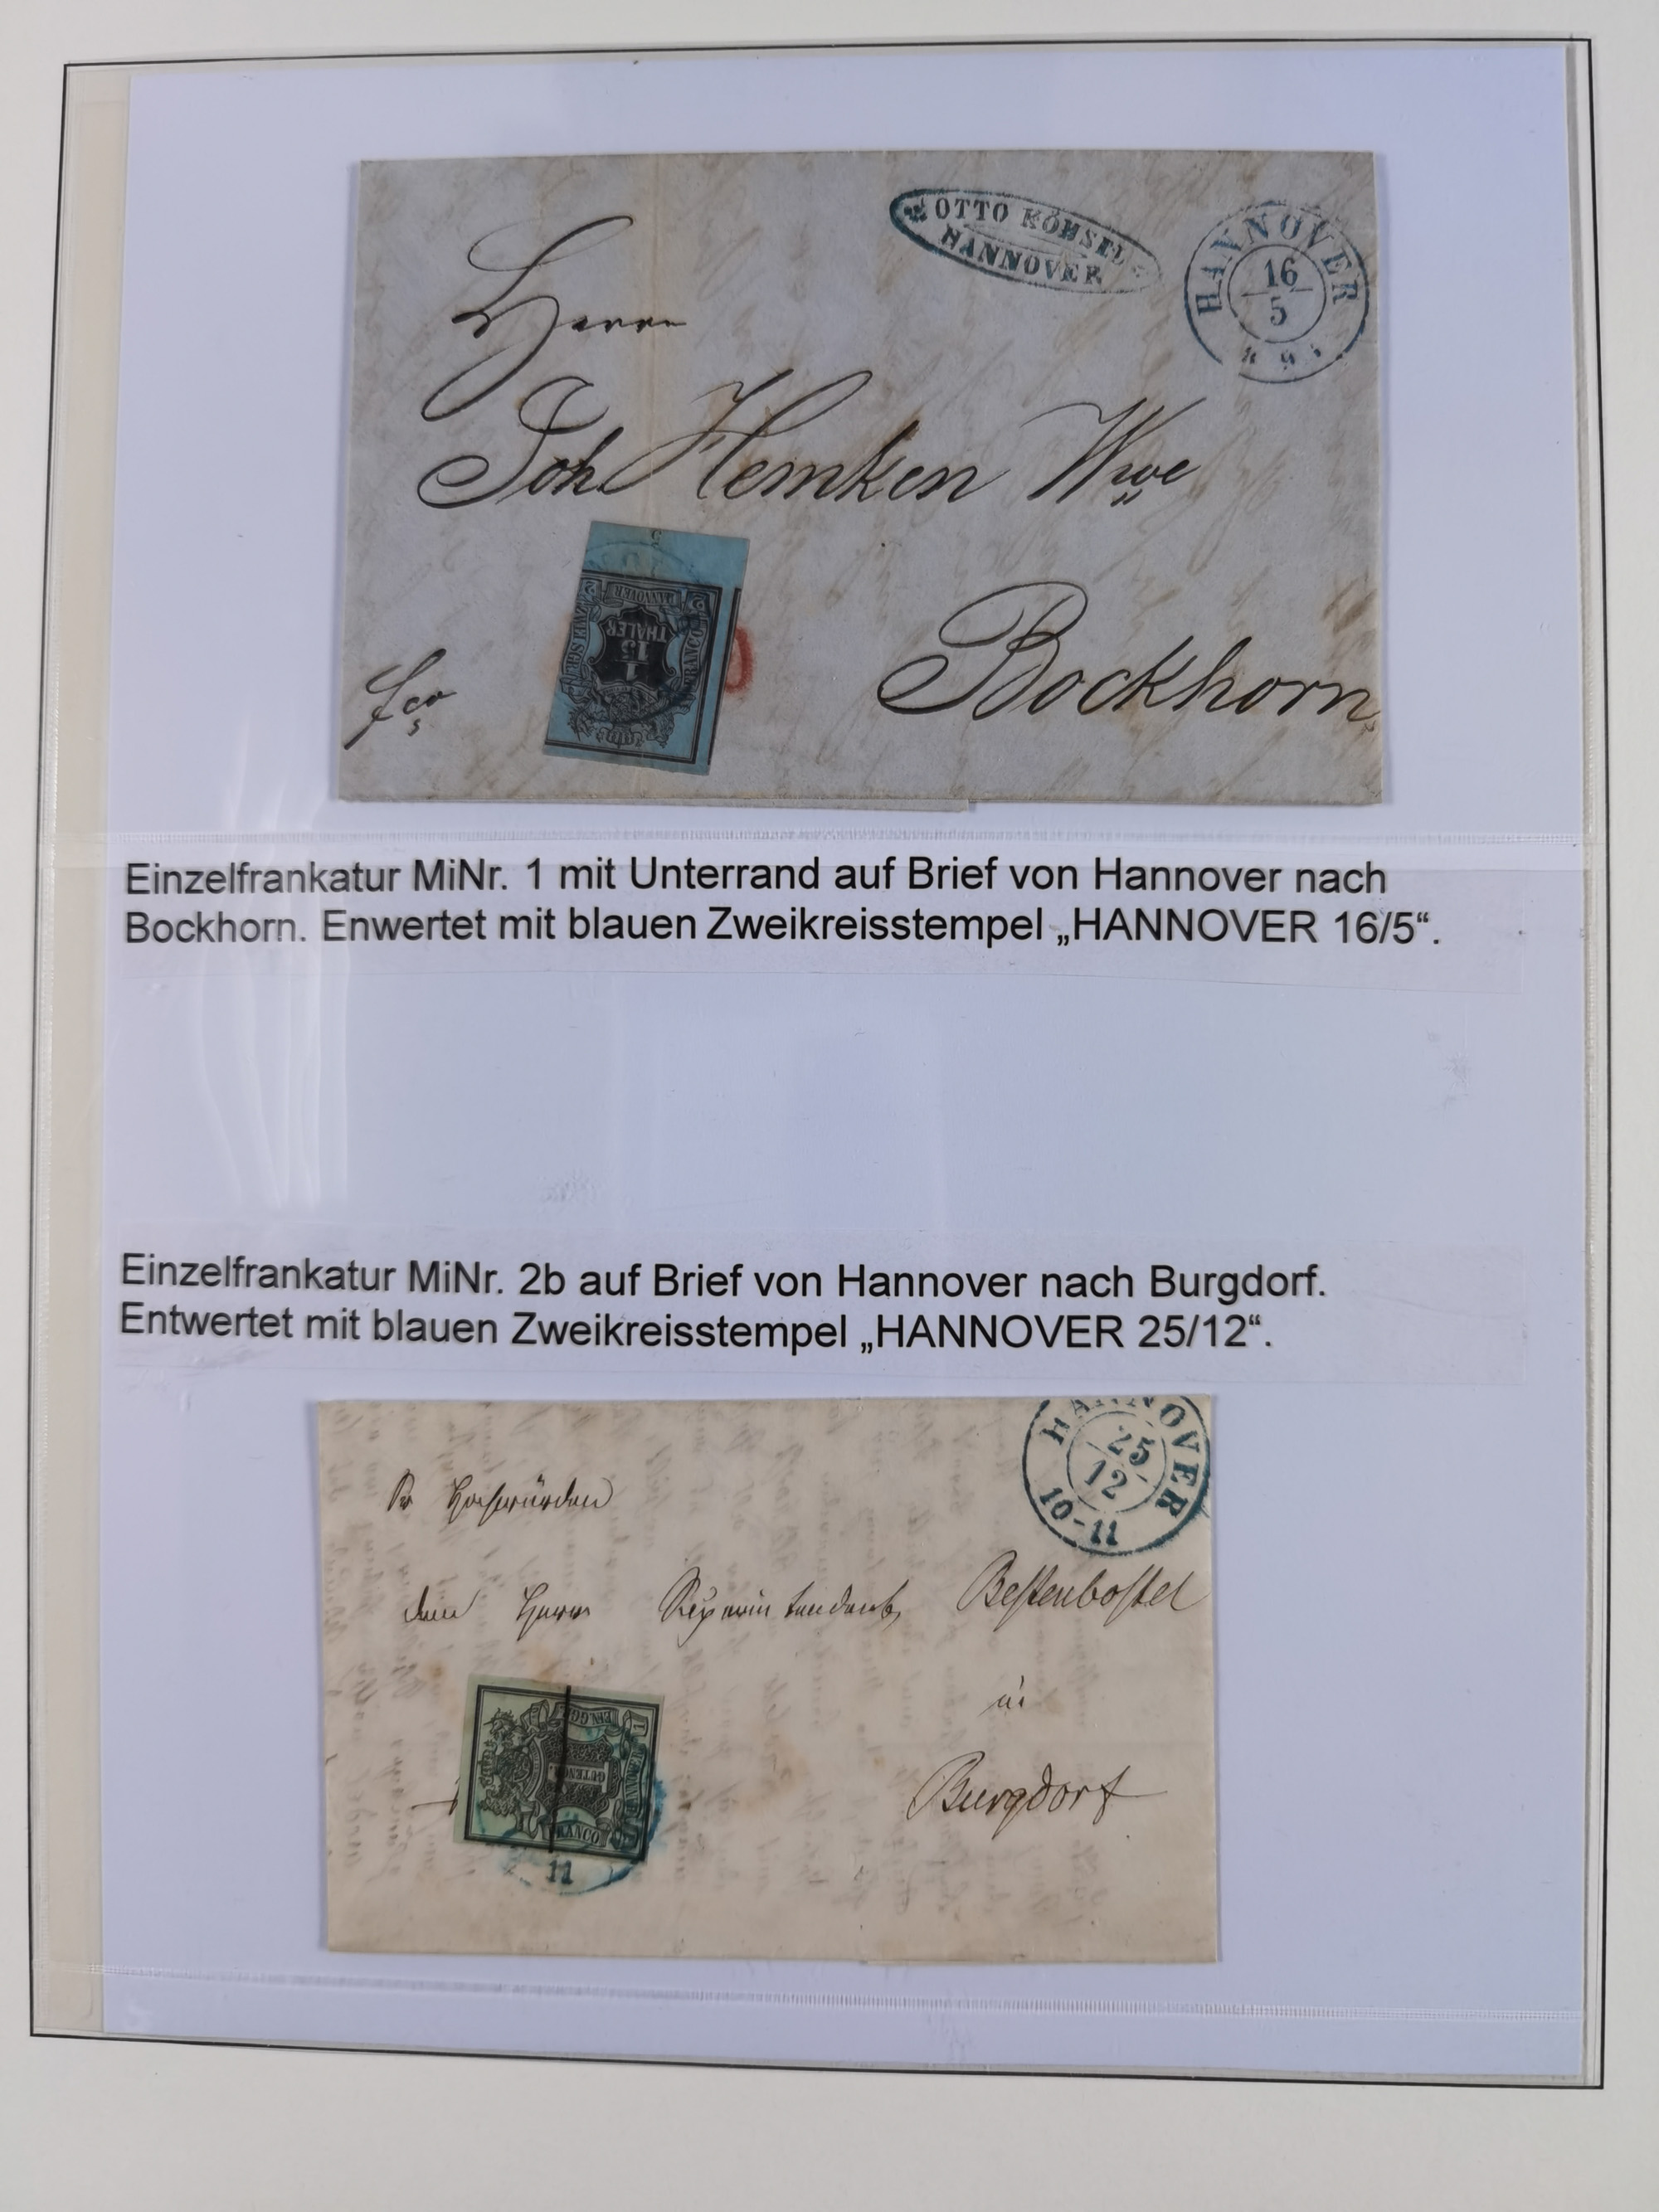 OTTO KÖHSEL
HANNOVER
HANNOVER
16
5
Herrn
Joh Hemken Wwe
Bockhorn
fco
5
HANNOVER
1
15
THALER
ZWEI SGR.
FRANCO
Einzelfrankatur MiNr. 1 mit Unterrand auf Brief von Hannover nach
Bockhorn. Enwertet mit blauen Zweikreisstempel „HANNOVER 16/5“.
Einzelfrankatur MiNr. 2b auf Brief von Hannover nach Burgdorf.
Entwertet mit blauen Zweikreisstempel „HANNOVER 25/12“.
HANNOVER
25
12
10-11
Sr Hochwürden
dem Herrn Superintendent Bestenbostel
in
Burgdorf
1
EIN GGR.
GUTENGR.
HANNOVER
FRANCO
11